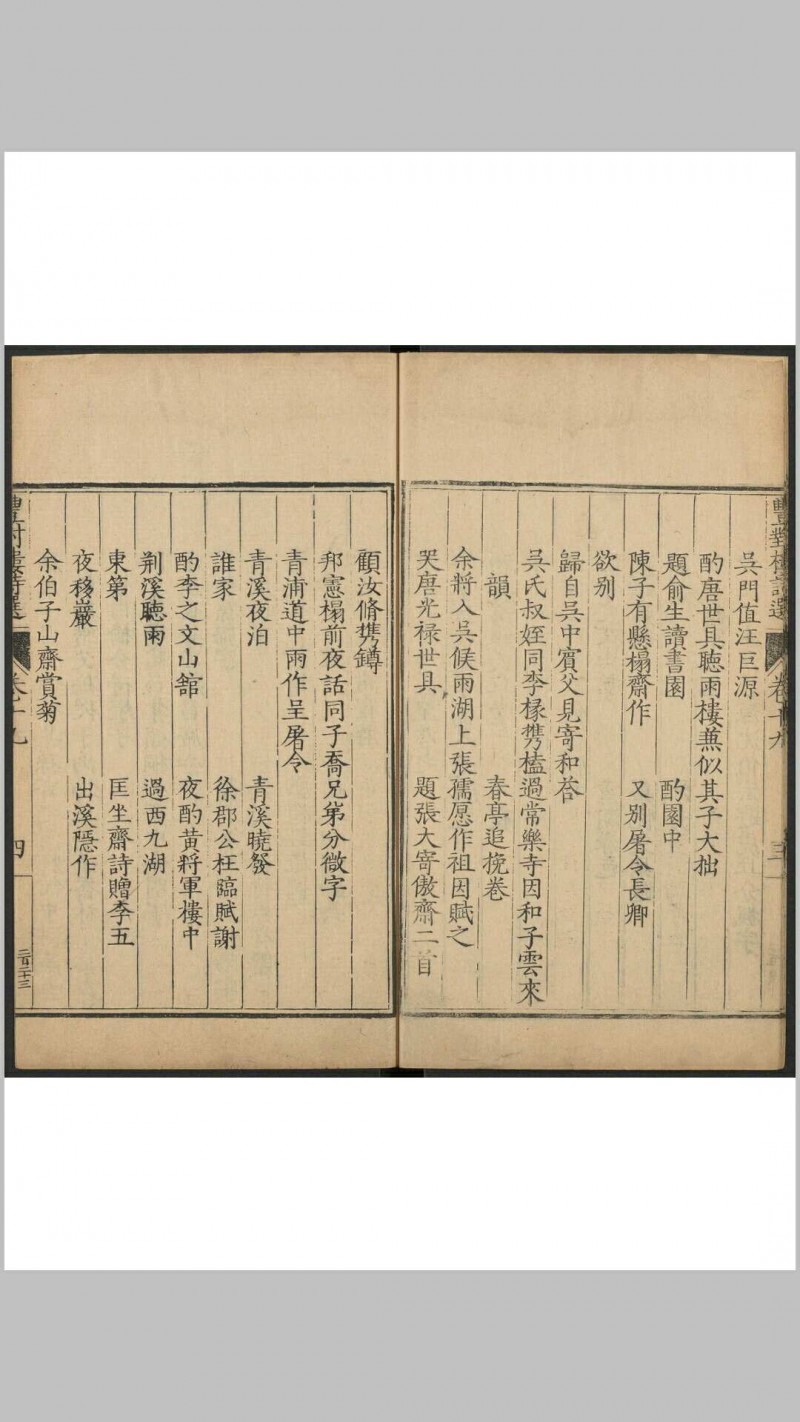 豐對樓詩選 卷十九 三
吳門值汪巨源
酌唐世具聽雨樓蕪似其子大拙
題俞生讀書園 酌園中
陳子有懸榻齋作 又別屠令長卿
欲别
歸自吳中賓父見寄和荅
吳氏叔姪同李椽携榼過常樂寺因和子雲來
韻 春亭追挽卷
余將入吳候雨湖上張孺愿作祖因賦之
哭唐光禄世具 題張大寄傲齋二首
顧汝脩携罇
邦憲榻前夜話同子喬兄弟分徵字
青浦道中雨作呈屠令
青溪夜泊 青溪曉發
誰家 徐郡公枉臨賦謝
酌李之文山舘 夜酌黄將軍樓中
剡溪聽雨 過西九湖
東第 匡坐齋詩贈李五
夜移巖 出溪隱作
余伯子山齋賞菊
豐對樓詩選 卷十九 四 三百二十三